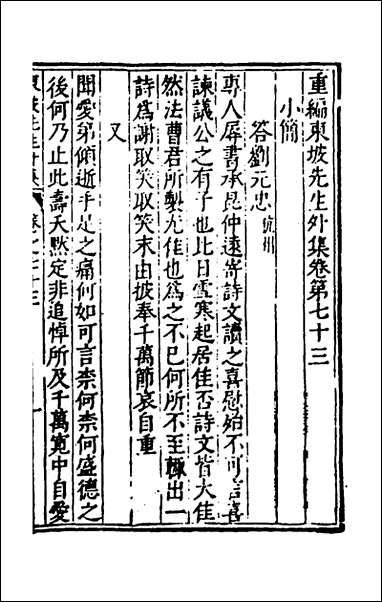 重編東坡先生外集卷第七十三
小簡
答劉元忠杭州
專人辱書承昆仲遠寄詩文讀之喜慰殆不可言喜
諫議公之有子也比日雪寒起居佳否詩文皆大佳
然法曹君所製尤佳也為之不已何所不至輙出一
詩為謝取笑取笑末由披奉千萬節哀自重
又
聞愛弟傾逝手足之痛何如可言柰何柰何盛德之
後何乃止此壽夭默定非追悼所及千萬寬中自愛